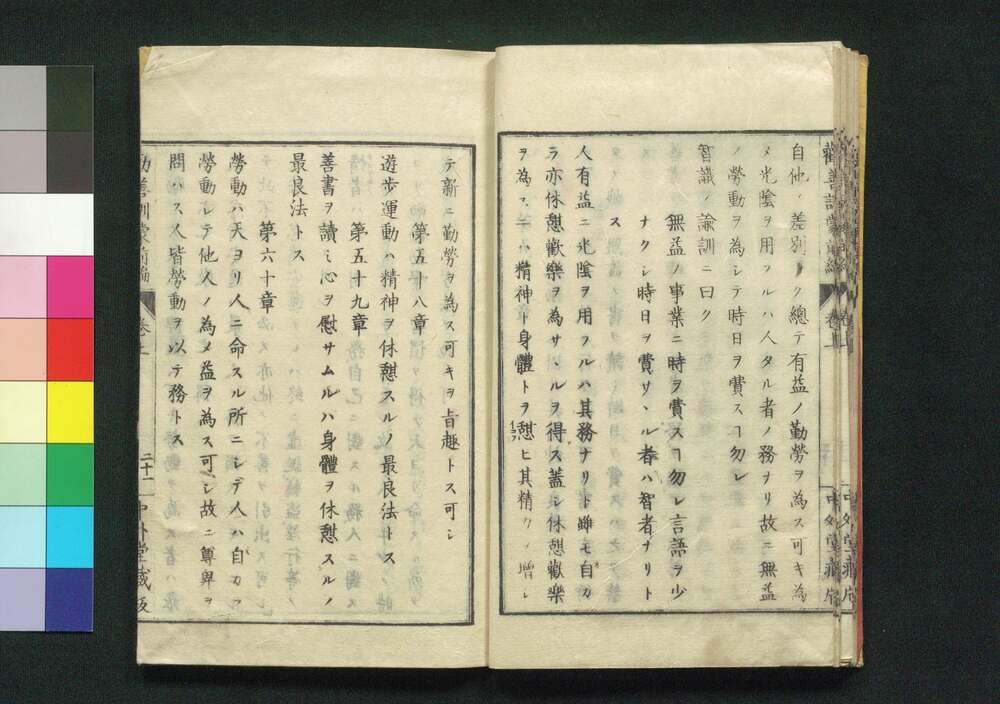 自他ノ差別ナク總テ有益ノ勤勞ヲ為ス可キ為
メ光陰ヲ用フルハ人タル者ノ務ナリ故ニ無益
ノ勞動ヲ為シテ時日ヲ費スヿ勿レ
智識ノ諭訓ニ曰ク
無益ノ事業ニ時ヲ費スヿ勿レ言語ヲ少
ナクシ時日ヲ費サヽル者ハ智者ナリト
ス
人有益ニ光陰ヲ用フルハ其務ナリト雖モ自カ
ラ亦休憩歡樂ヲ為サヽルヲ得ス蓋シ休憩歡樂
ヲ為スニハ精神ト身體トヲ憩ヒ其精力ノ増シ
テ新ニ勤勞ヲ為ス可キヲ旨趣トス可シ
第五十八章
遊歩運動ハ精神ヲ休憩スルノ最良法トス
第五十九章
善書ヲ讀ミ心ヲ慰サムルハ身體ヲ休憩スルノ
最良法トス
第六十章
勞動ハ天ヨリ人ニ命スル所ニシテ人ハ自カラ
勞動シテ他人ノ為メ益ヲ為ス可シ故ニ尊卑ヲ
問ハス人皆勞動ヲ以テ務トス
二十二 中外堂藏板